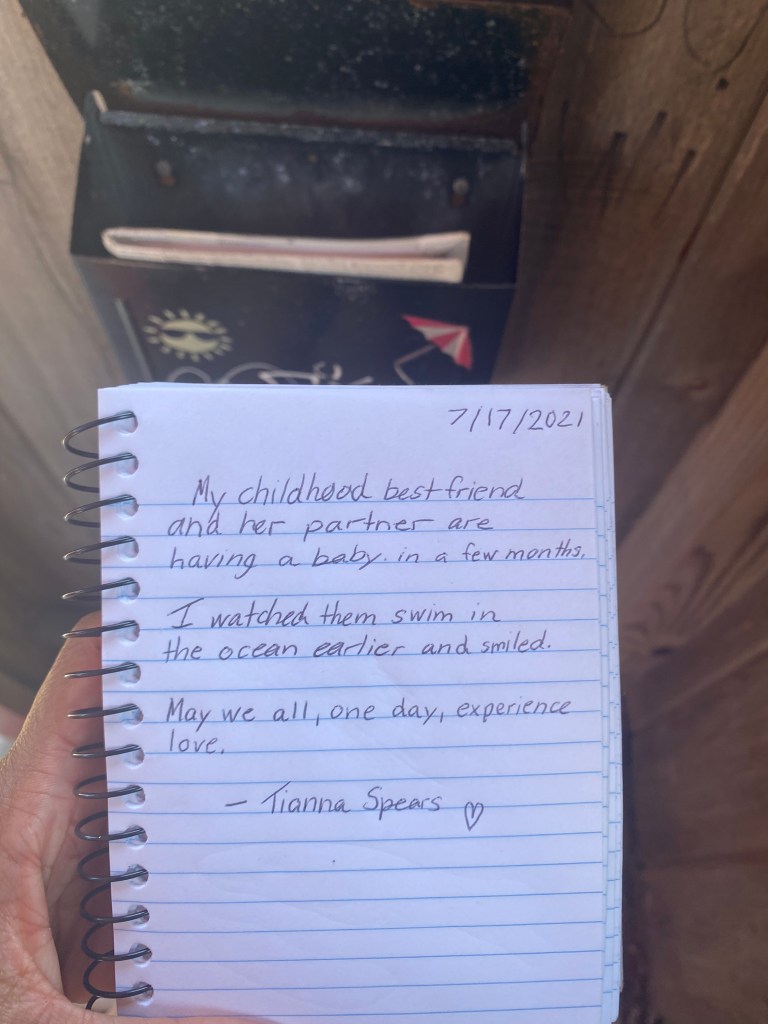 7/17/2021
My childhood best friend
and her partner are
having a baby in a few months.
I watched them swim in
the ocean earlier and smiled.
May we all, one day, experience
love.
- Tianna Spears ♡